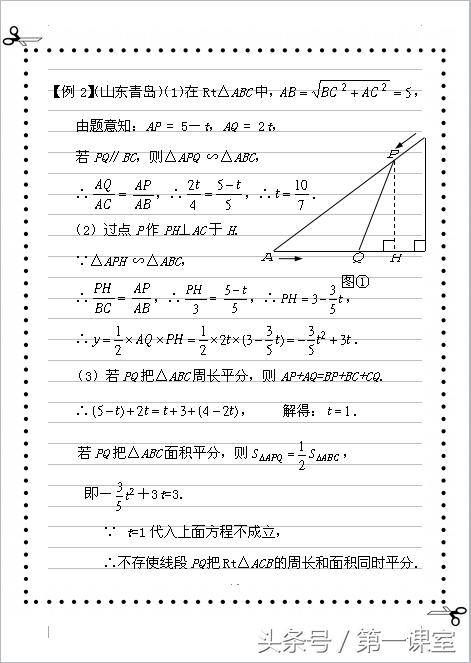 【例2】(山东青岛)(1)在Rt△ABC中, AB = √(BC² + AC²) = 5,
由题意知: AP = 5－t, AQ = 2t,
若 PQ∥BC, 则△APQ ∽△ABC,
∴ AQ/AC = AP/AB, ∴ 2t/4 = (5－t)/5, ∴ t = 10/7.
(2) 过点 P作 PH⊥AC于 H.
∵△APH ∽△ABC,
∴ PH/BC = AP/AB, ∴ PH/3 = (5－t)/5, ∴ PH = 3－3/5t,
∴ y = 1/2 × AQ × PH = 1/2 × 2t × (3－3/5t) = －3/5t² + 3t.
P
A
Q
H
图①
(3) 若PQ把△ABC周长平分, 则 AP+AQ=BP+BC+CQ.
∴ (5－t)+2t = t+3+(4－2t), 解得: t = 1.
若PQ把△ABC面积平分, 则 S△APQ = 1/2 S△ABC,
即－3/5t²＋3t=3.
∵ t=1代入上面方程不成立,
∴不存使线段PQ把Rt△ACB的周长和面积同时平分.
头条号 / 第一课室